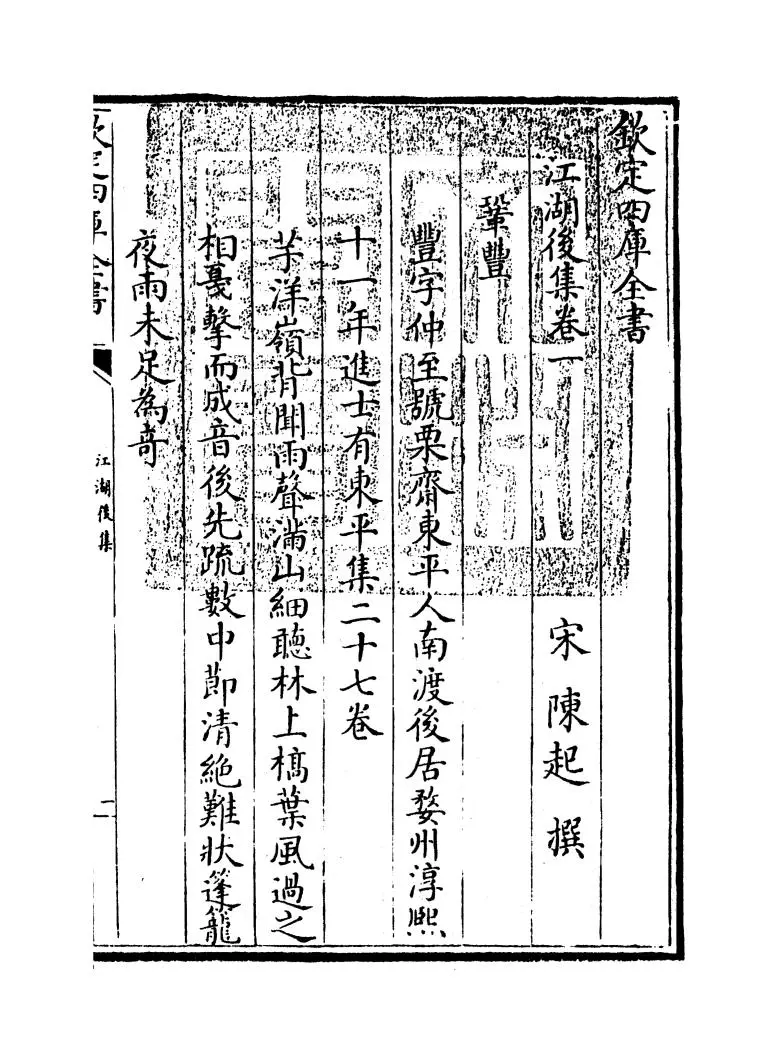 欽定四庫全書
江湖後集卷一
宋 陳起 撰
鞏豐
豐字仲至號栗齋東平人南渡後居婺州淳熙
十一年進士有東平集二十七卷
芋洋嶺背聞雨聲滿山細聽林上槁葉風過之
相戛擊而成音後先疏數中節清絶難狀篷籠
夜雨未足為奇
欽定四庫全書
江湖後集
二